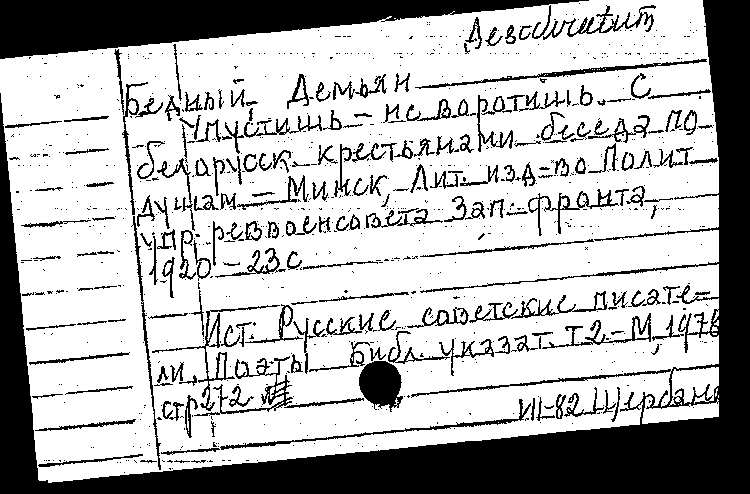 Desiderata
Бедный, Демьян
Упустишь – не воротишь. С
белорусск. крестьянами беседа по
душам. – Минск, Лит. изд-во Полит
упр. реввоенсовета Зап. фронта,
1920 – 23 с
Ист: Русские советские писате-
ли. Поэты Библ. указат. Т2. – М, 1978
стр 272
VIII-82 Щербан